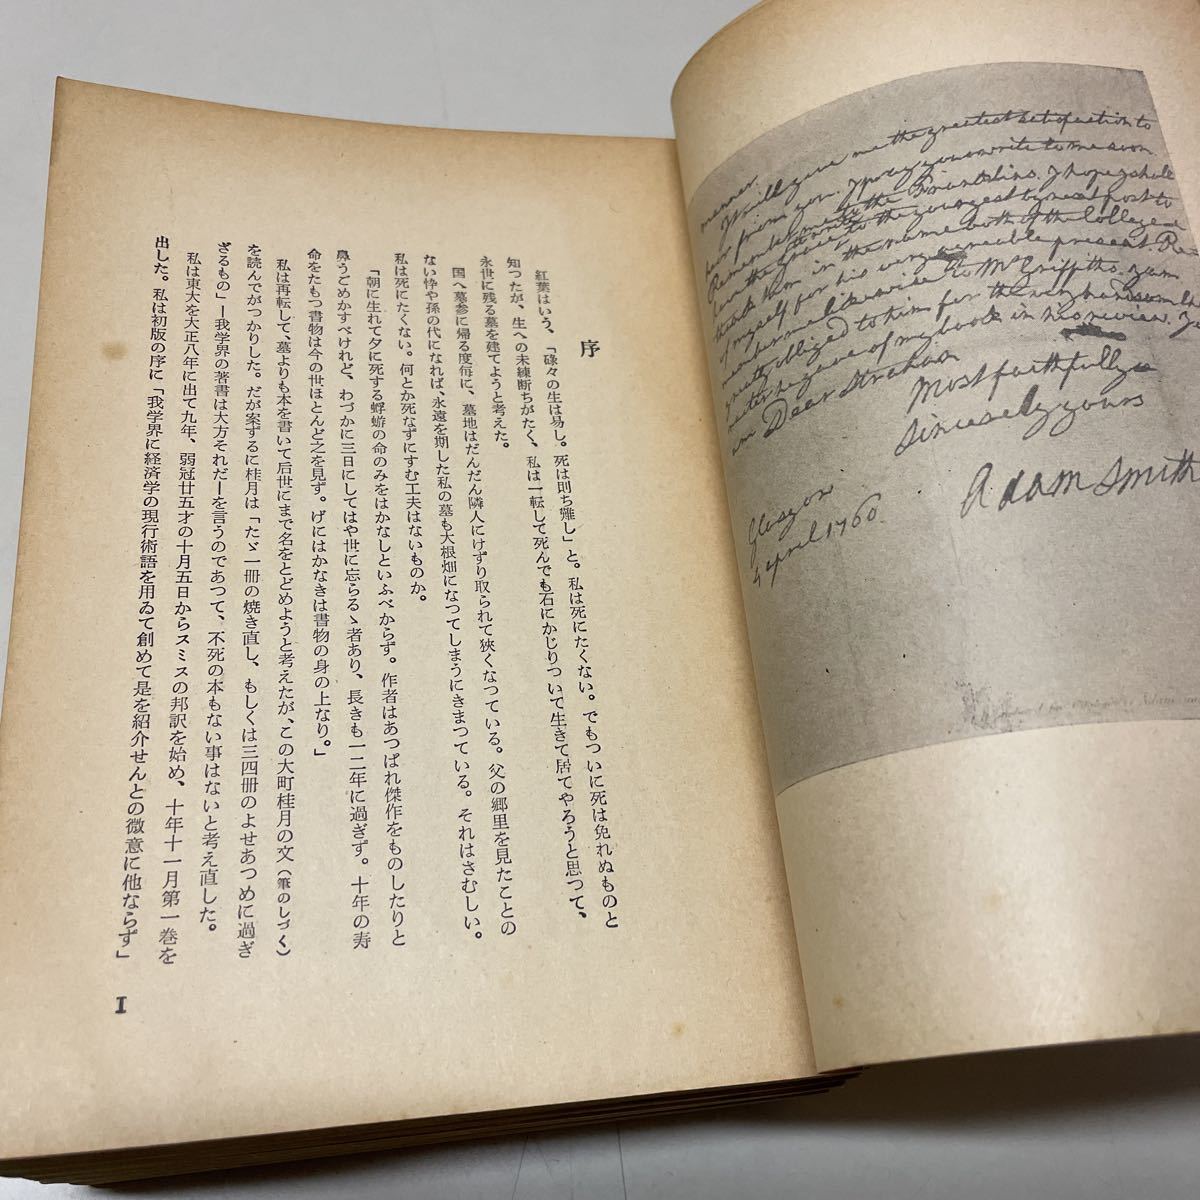 序
紅葉はいう、「碌々の生は易し。死は則ち難し」と。私は死にたくない。でもついに死は免れぬものと
知つたが、生への未練断ちがたく、私は一転して死んでも石にかじりついて生きて居てやろうと思つて、
永世に残る墓を建てようと考えた。
国へ墓参に帰る度毎に、墓地はだんだん隣人にけずり取られて狭くなつている。父の郷里を見たことの
ない悴や孫の代になれば、永遠を期した私の墓も大根畑になつてしまうにきまつている。それはさむしい。
私は死にたくない。何とか死なずにすむ工夫はないものか。
「朝に生れて夕に死する蜉蝣の命のみをはかなしといふべからず。作者はあつぱれ傑作をものしたりと
鼻うごめかすべけれど、わづかに三日にしてはや世に忘らるゝ者あり、長きも一二年に過ぎず。十年の寿
命をたもつ書物は今の世ほとんど之を見ず。げにはかなきは書物の身の上なり。」
私は再転して、墓よりも本を書いて后世にまで名をとどめようと考えたが、この大町桂月の文（筆のしづく）
を読んでがつかりした。だが案ずるに桂月は「たゞ一冊の焼き直し、もしくは三四冊のよせあつめに過ぎ
ざるもの」ー我学界の著書は大方それだーを言うのであつて、不死の本もない事はないと考え直した。
私は東大を大正八年に出て九年、弱冠廿五才の十月五日からスミスの邦訳を始め、十年十一月第一巻を
出した。私は初版の序に「我学界に経済学の現行術語を用ゐて創めて是を紹介せんとの微意に他ならず」
I
manner.
It will give me the greatest satisfaction to
hear from you. I pray you write to me soon.
Remember me to the Franklins. I hope I shall
have the grace to the youngest by next post to
thank him in the name both of the College &
of myself for his very agreeable present. Re
member me likewise to Mr Griffiths. I am
greatly obliged to him for the very handsom
of my book in his review. I
am Dear Strahan
Most faithfully &
sincerely yours
Adam Smith
Glasgow
4 April 1760